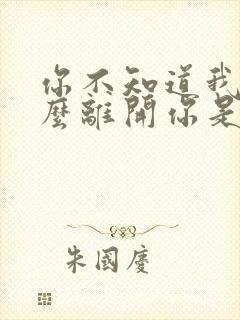 你不知道我
麼離開你是
朱國慶